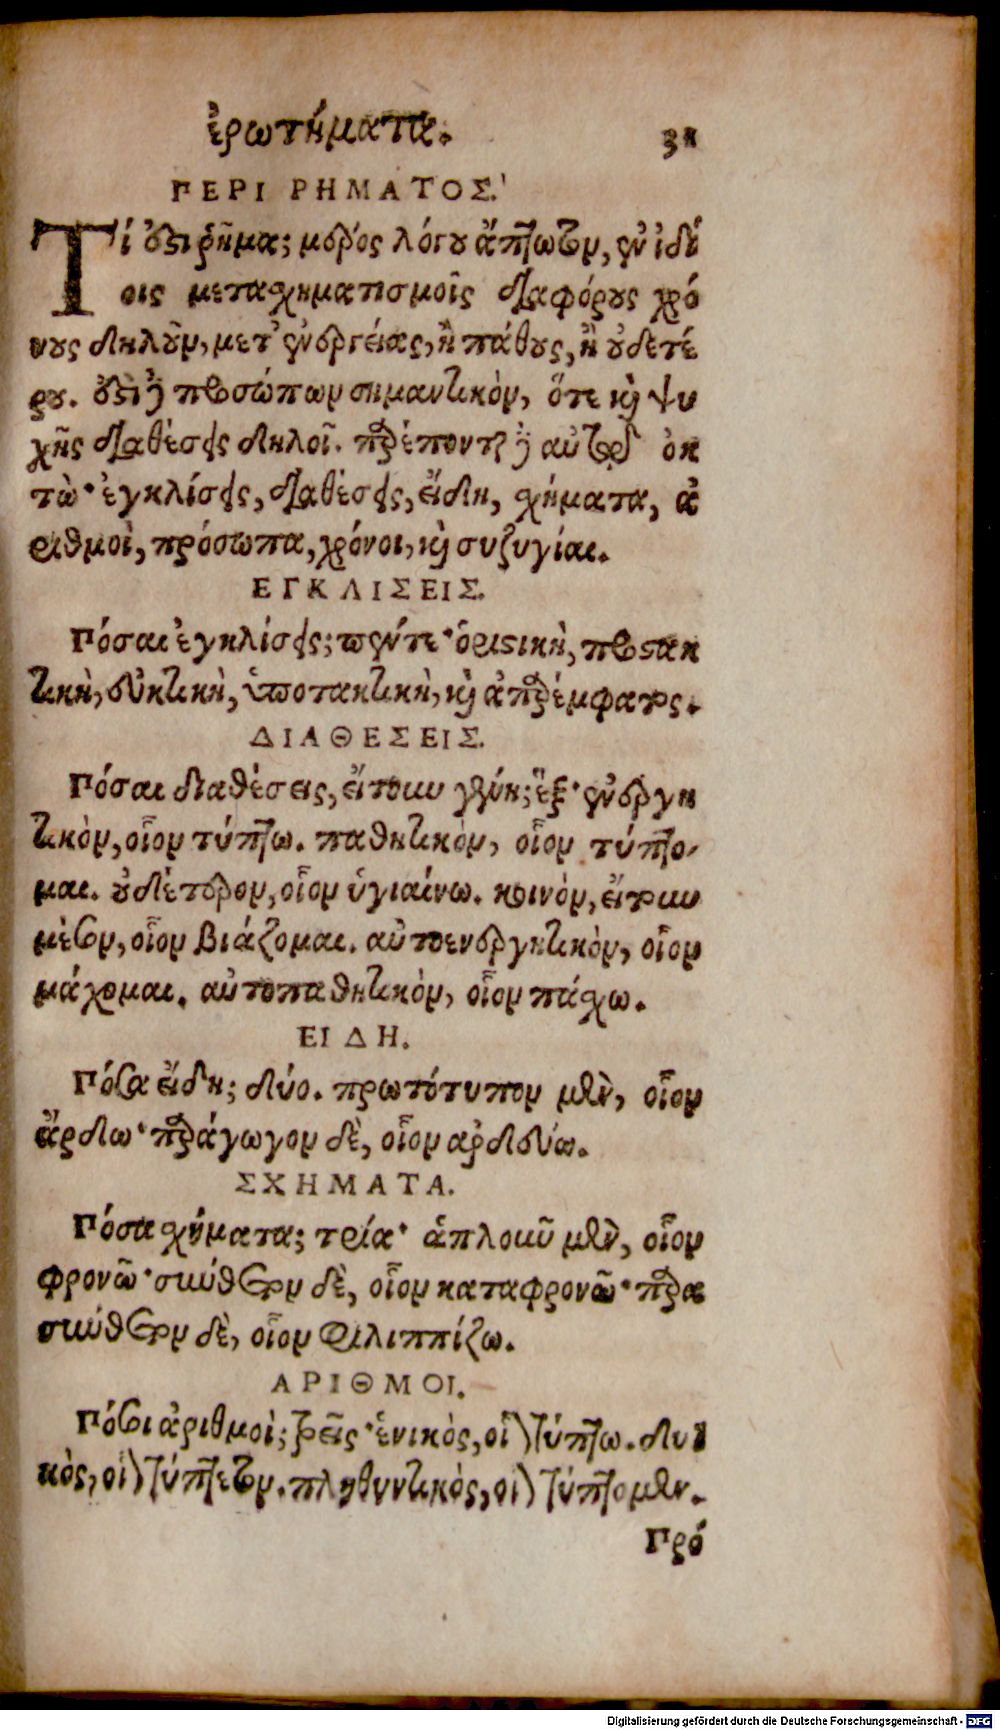 ἐρωτήματα. 31
ΠΕΡΙ ΡΗΜΑΤΟΣ.
Τί ἐστι ῥῆμα; μέρος λόγου ἄπτωτον, ἐν ἰδί
οις μετασχηματισμοῖς διαφόρους χρό
νους δηλοῦν, μετ' ἐνεργείας, ἢ πάθους, ἢ οὐδετέ
ρου. ἔστι δὲ προσώπων σημαντικὸν, ὅτε καὶ ψυ
χῆς διαθέσεις δηλοῖ. παρέπονται δὲ αὐτῷ ὀκ
τὼ· ἐγκλίσεις, διαθέσεις, εἴδη, σχήματα, ἀ
ριθμοὶ, πρόσωπα, χρόνοι, καὶ συζυγίαι.
ΕΓΚΛΙΣΕΙΣ.
Πόσαι ἐγκλίσεις; πέντε· ὁριστικὴ, προστακ
τικὴ, εὐκτικὴ, ὑποτακτικὴ, καὶ ἀπαρέμφατος.
ΔΙΑΘΕΣΕΙΣ.
Πόσαι διαθέσεις, εἴτουν γένη; ἕξ· ἐνεργη
τικὸν, οἷον τύπτω. παθητικὸν, οἷον τύπτο-
μαι. οὐδέτερον, οἷον ὑγιαίνω. κοινὸν, εἴτουν
μέσον, οἷον βιάζομαι. αὐτοενεργητικὸν, οἷον
μάχομαι. αὐτοπαθητικὸν, οἷον πάσχω.
ΕΙΔΗ.
Πόσα εἴδη; δύο. πρωτότυπον μὲν, οἷον
ἄρδω· παράγωγον δὲ, οἷον ἀρδεύω.
ΣΧΗΜΑΤΑ.
Πόσα σχήματα; τρία· ἁπλοῦν μὲν, οἷον
φρονῶ· σύνθετον δὲ, οἷον καταφρονῶ· παρα
σύνθετον δὲ, οἷον Φιλιππίζω.
ΑΡΙΘΜΟΙ.
Πόσοι ἀριθμοὶ; τρεῖς· ἑνικὸς, οἷον τύπτω. δυϊ
κὸς, οἷον τύπτετον. πληθυντικὸς, οἷον τύπτομεν.
Πρό
Digitalisierung gefördert durch die Deutsche Forschungsgemeinschaft - DFG